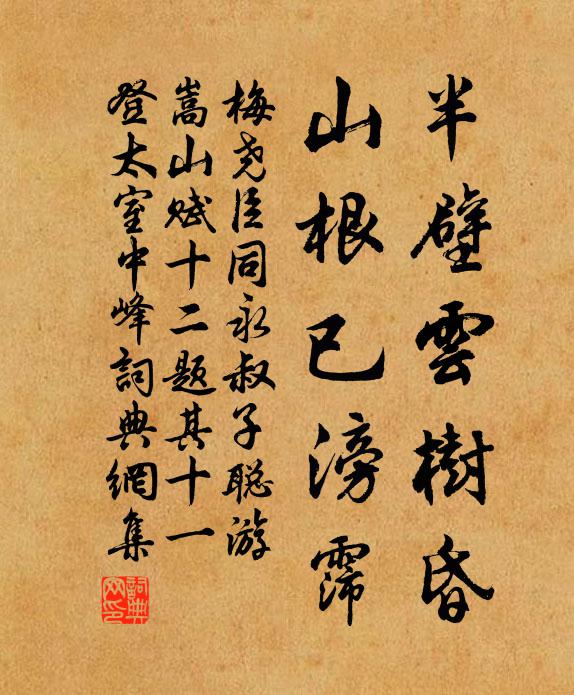 半壁雲樹昏
山根已滂霈
梅尧臣同永叔子聪游
嵩山赋十二题其十一
登太室中峰詞典網集
詞典网印